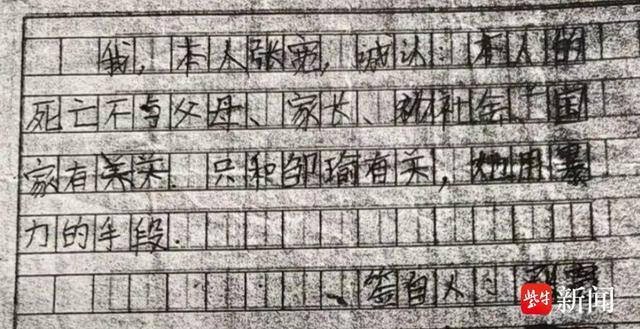 我，本人张宽，诚认：本人的
死亡不与父母、家长、和社会、国
家有关关．只和邹瑜有关，她用暴
力的手段．
签自人：
紫牛新闻